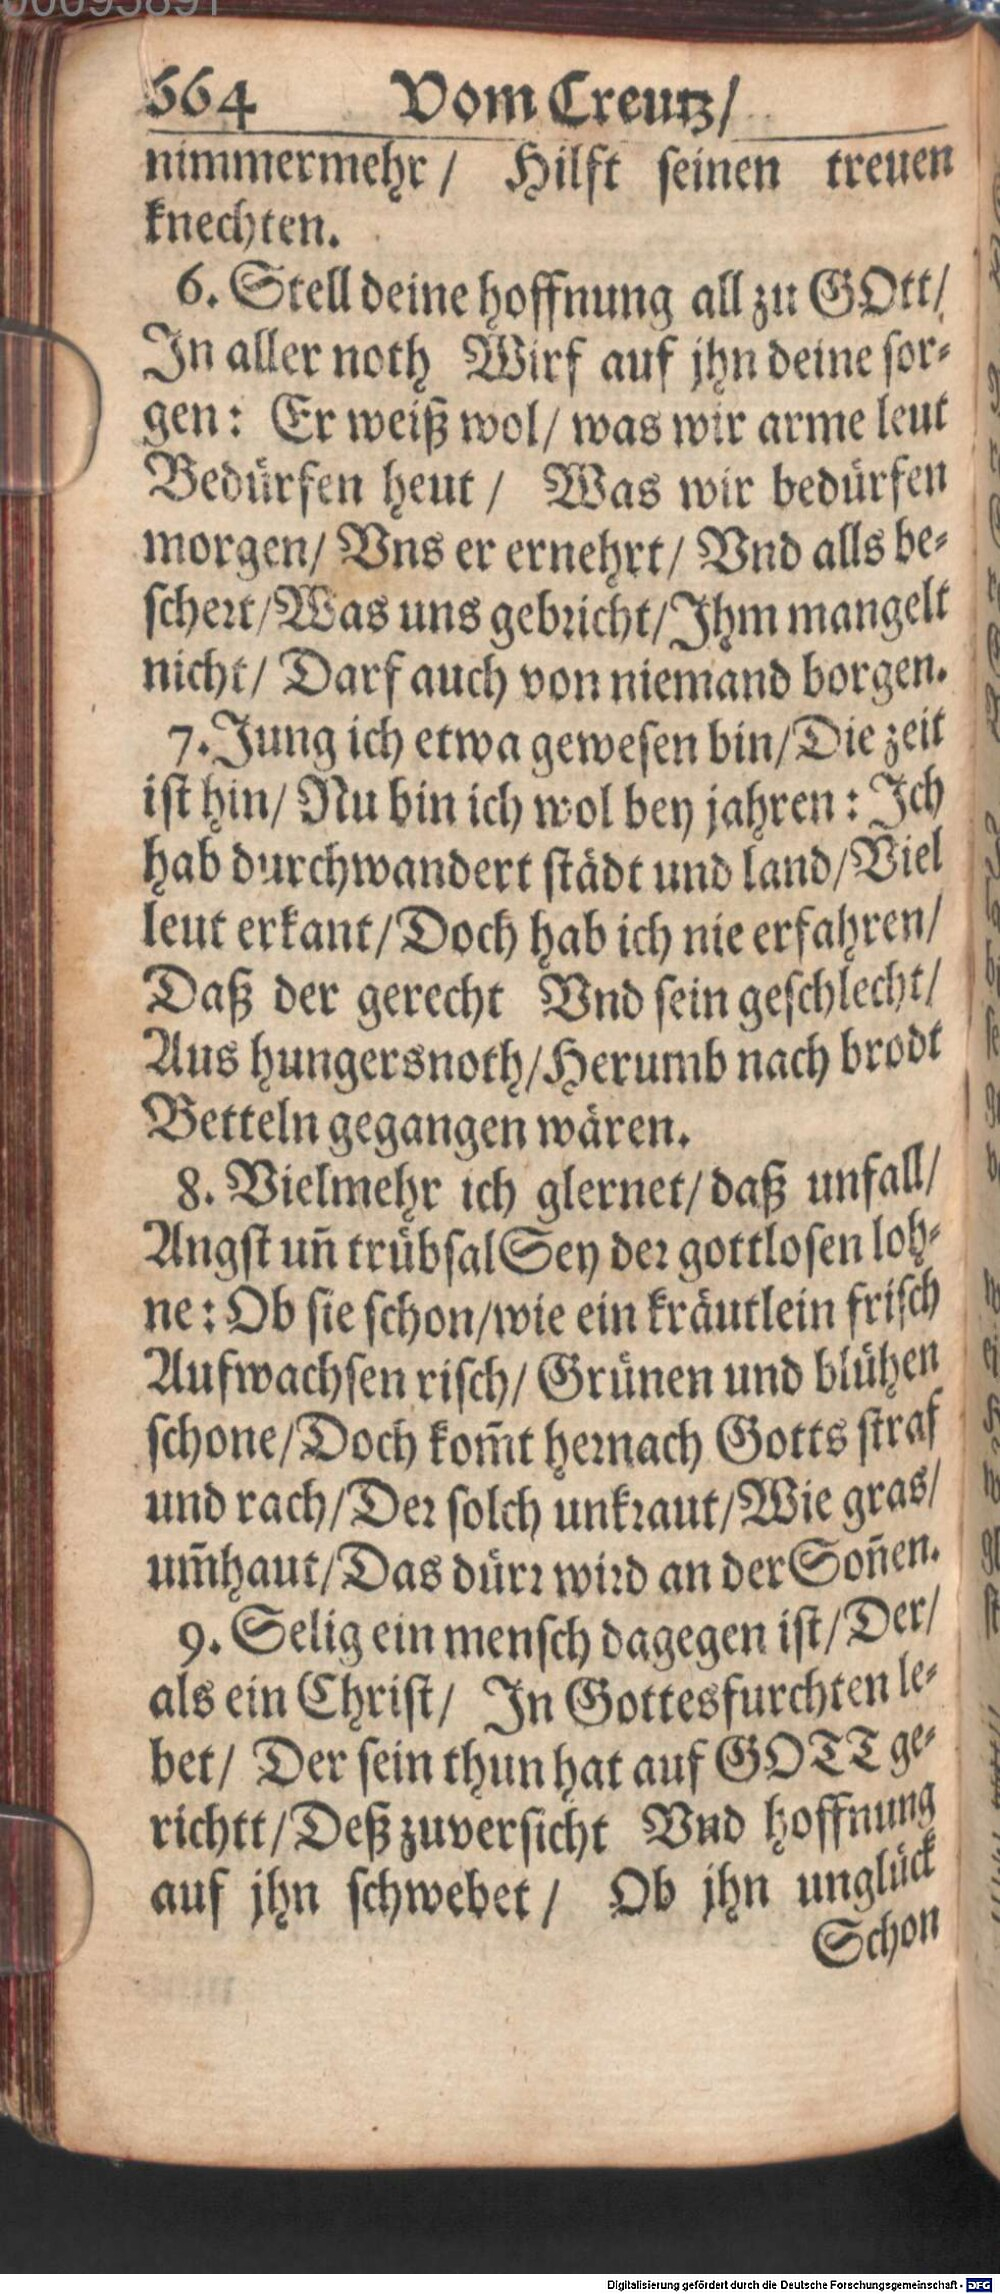 00095891
664 Vom Creutz/
nimmermehr/ Hilft seinen treuen
knechten.
6. Stell deine hoffnung all zu GOtt/
In aller noth Wirf auf jhn deine sor-
gen: Er weiß wol/ was wir arme leut
Bedürfen heut/ Was wir bedürfen
morgen/ Vns er ernehrt/ Vnd alls be-
schert/ Was uns gebricht/ Ihm mangelt
nicht/ Darf auch von niemand borgen.
7. Jung ich etwa gewesen bin/ Die zeit
ist hin/ Nu bin ich wol bey jahren: Ich
hab durchwandert städt und land/ Viel
leut erkant/ Doch hab ich nie erfahren/
Daß der gerecht Vnd sein geschlecht/
Aus hungersnoth/ Herumb nach brodt
Betteln gegangen wären.
8. Vielmehr ich glernet/ daß unfall/
Angst uñ trübsal Sey der gottlosen loh-
ne: Ob sie schon/ wie ein kräutlein frisch
Aufwachsen risch/ Grünen und blühen
schone/ Doch kom̃t hernach Gotts straf
und rach/ Der solch unkraut/ Wie gras/
um̃haut/ Das dürr wird an der Soñen.
9. Selig ein mensch dagegen ist/ Der/
als ein Christ/ In Gottesfurchten le-
bet/ Der sein thun hat auf GOTT ge-
richtt/ Deß zuversicht Vnd hoffnung
auf jhn schwebet/ Ob jhn unglück
Schon
Digitalisierung gefördert durch die Deutsche Forschungsgemeinschaft - DFG